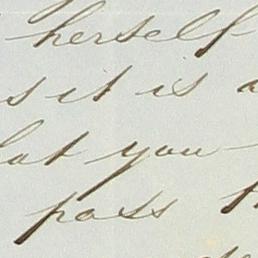 herself
s it is a
hat you
pass t